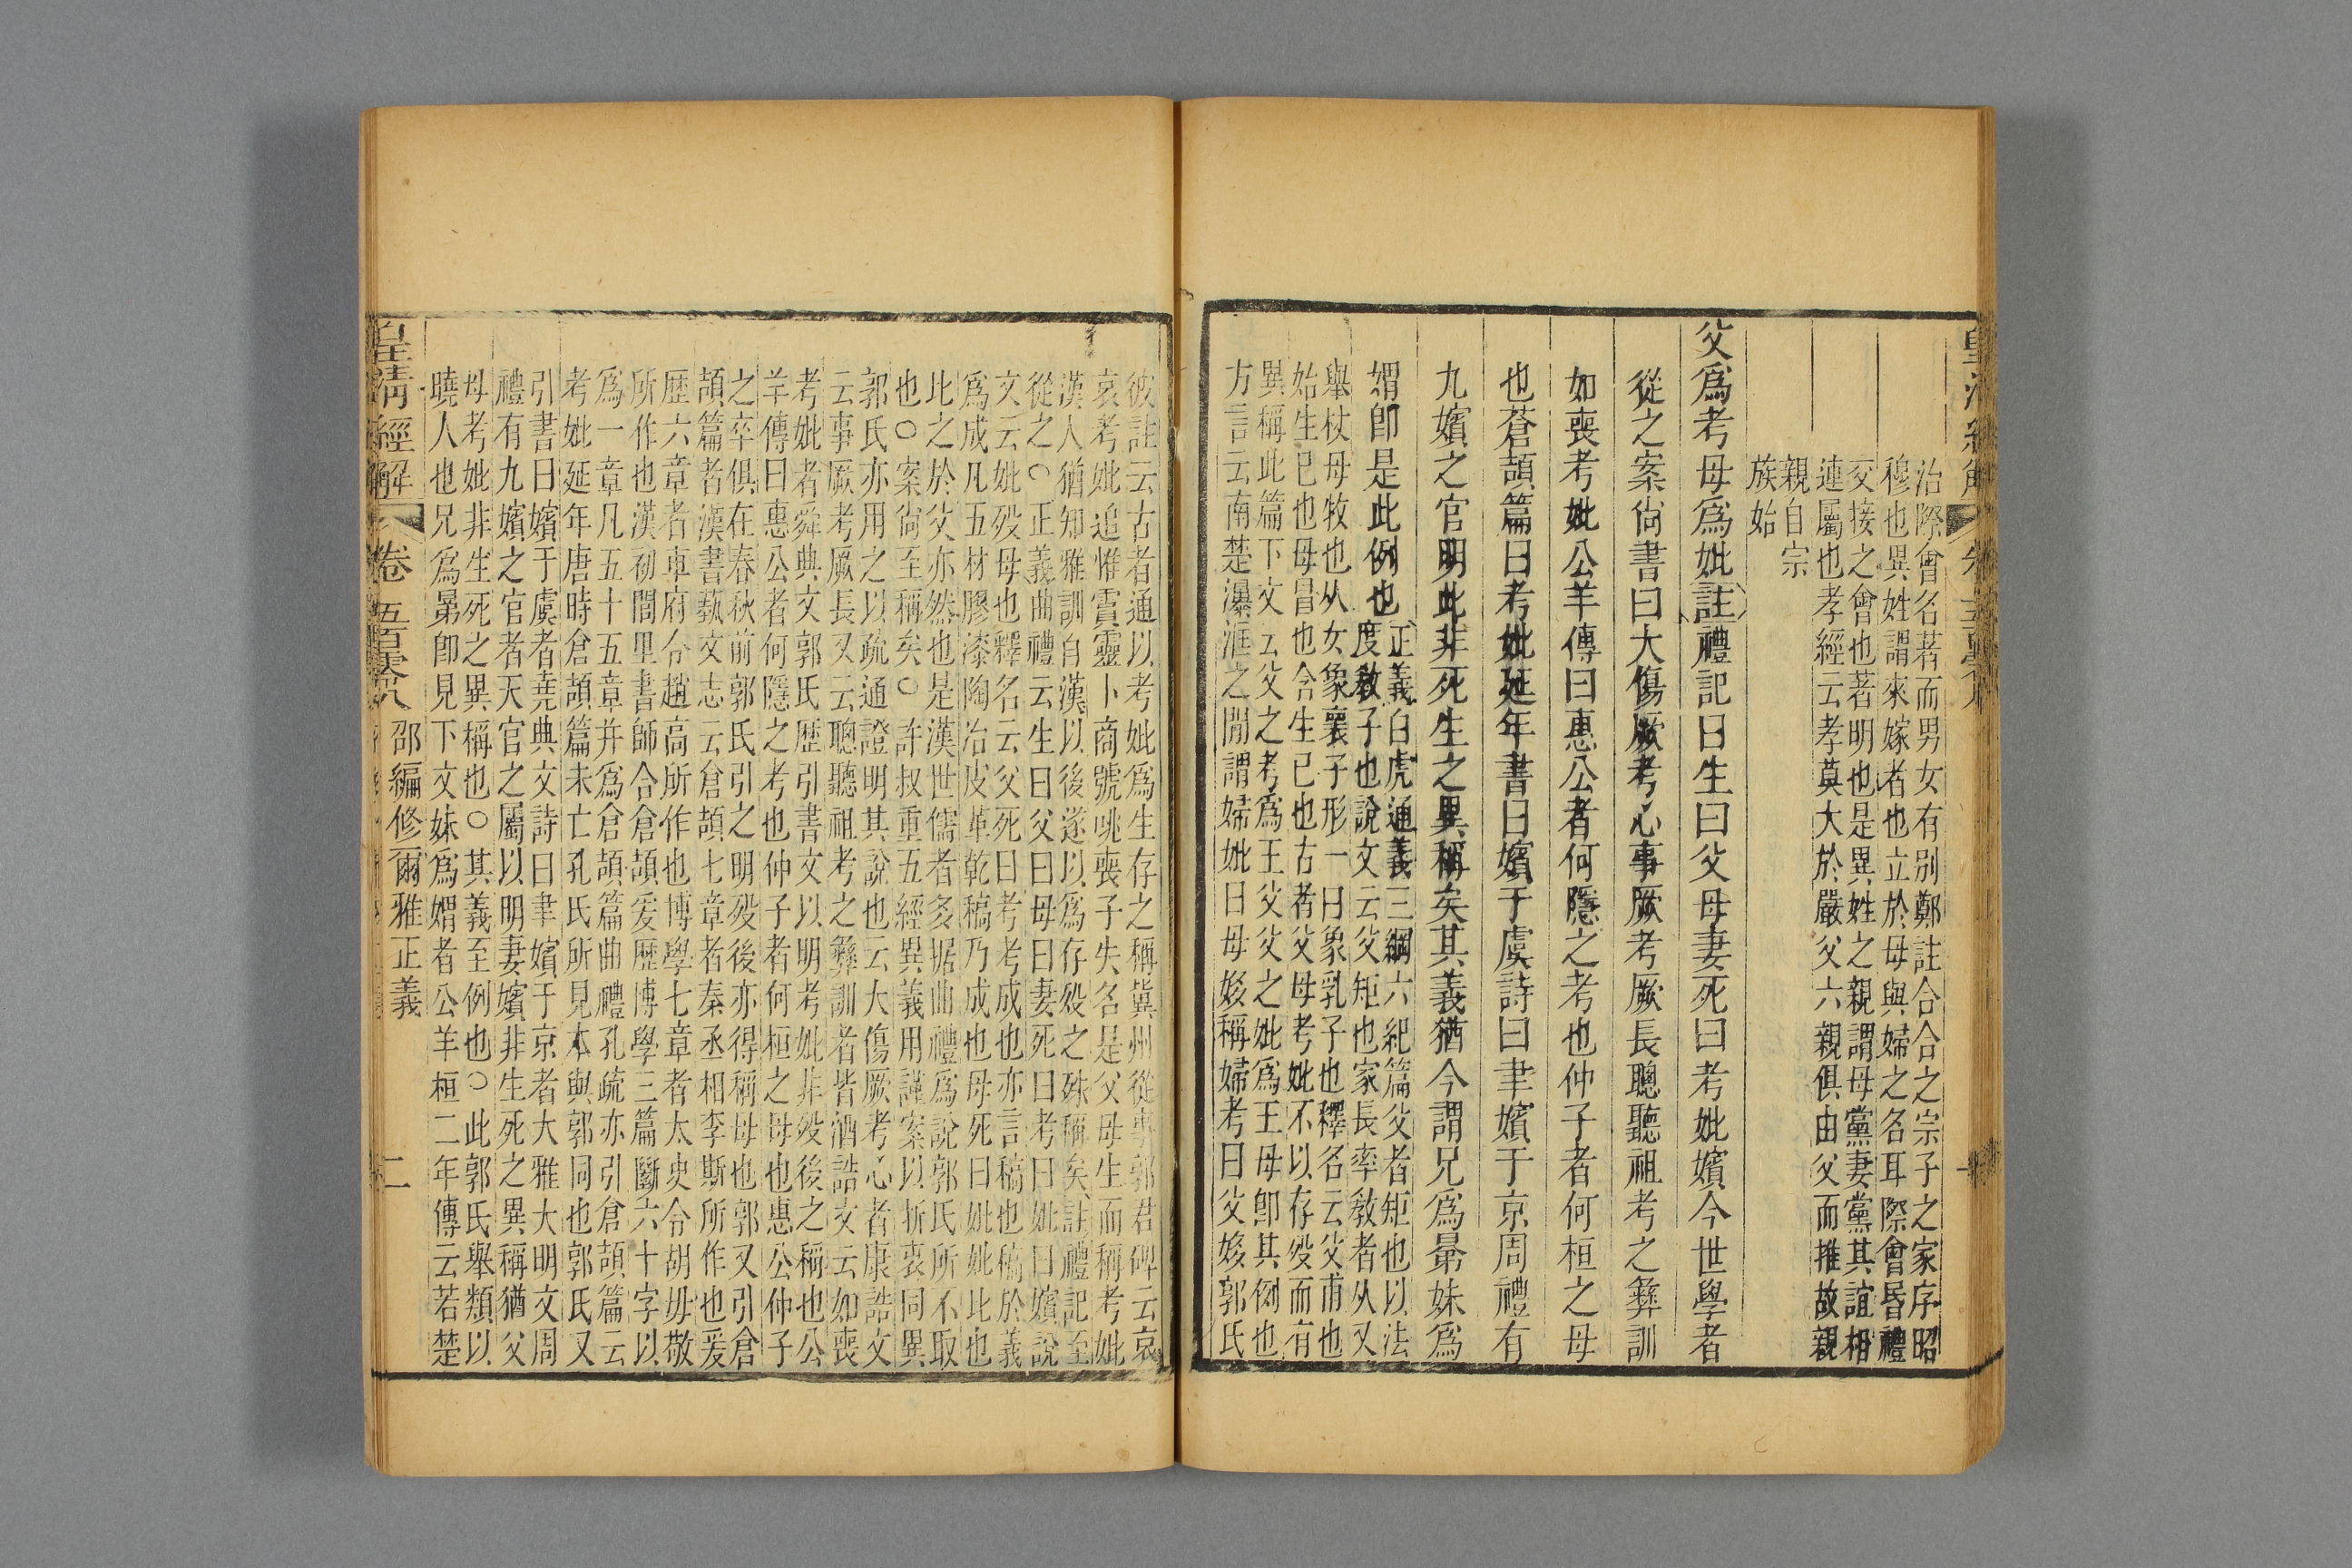 治際會名著而男女有別鄭註合合之宗子之家序昭
穆也異姓謂來嫁者也立於母與婦之名耳際會昏禮
交接之會也著明也是異姓之親謂母黨妻黨其誼相
連屬也孝經云孝莫大於嚴父六親俱由父而推故親
親自宗
族始
父爲考母爲妣註禮記曰生曰父母妻死曰考妣嬪今世學者
從之案尙書曰大傷厥考心事厥考厥長聰聽祖考之彝訓
如喪考妣公羊傳曰惠公者何隱之考也仲子者何桓之母
也蒼頡篇曰考妣延年書曰嬪于虞詩曰聿嬪于京周禮有
九嬪之官明此非死生之異稱矣其義猶今謂兄爲晜妹爲
媦卽是此例也
正義白虎通義三綱六紀篇父者矩也以法
度教子也說文云父矩也家長率教者从又
舉杖母牧也从女象褱子形一曰象乳子也釋名云父甫也
始生已也母冒也含生已也古者父母考妣不以存歿而有
異稱此篇下文云父之考爲王父父之妣爲王母卽其例也
方言云南楚瀑洭之閒謂婦妣曰母姼稱婦考曰父姼郭氏
彼註云古者通以考妣爲生存之稱冀州從事郭君碑云哀
哀考妣追惟霣靈卜商號咷喪子失名是父母生而稱考妣
漢人猶知雅訓自漢以後遂以爲存歿之殊稱矣註禮記至
從之○正義曲禮云生曰父曰母曰妻死曰考曰妣曰嬪說
文云妣歿母也釋名云父死曰考考成也亦言稿也稿於義
爲成凡五材膠漆陶冶皮革乾稿乃成也母死曰妣妣比也
此之於父亦然也是漢世儒者多据曲禮爲說郭氏所不取
也○案尙至稱矣○許叔重五經異義用謹案以折衷同異
郭氏亦用之以疏通證明其說也云大傷厥考心者康誥文
云事厥考厥長又云聰聽祖考之彝訓者皆酒誥文云如喪
考妣者舜典文郭氏歷引書文以明考妣非歿後之稱也公
羊傳曰惠公者何隱之考也仲子者何桓之母也惠公仲子
之卒俱在春秋前郭氏引之明歿後亦得稱母也郭又引倉
頡篇者漢書藝文志云倉頡七章者秦丞相李斯所作也爰
歷六章者車府令趙高所作也博學七章者太史令胡毋敬
所作也漢初閭里書師合倉頡爰歷博學三篇斷六十字以
爲一章凡五十五章并爲倉頡篇曲禮孔疏亦引倉頡篇云
考妣延年唐時倉頡篇未亡孔氏所見本與郭同也郭氏又
引書曰嬪于虞者堯典文詩曰聿嬪于京者大雅大明文周
禮有九嬪之官者天官之屬以明妻嬪非生死之異稱猶父
母考妣非生死之異稱也○其義至例也○此郭氏舉類以
曉人也兄爲晜卽見下文妹爲媦者公羊桓二年傳云若楚
皇清經解 卷五百零八 邵編修爾雅正義 二